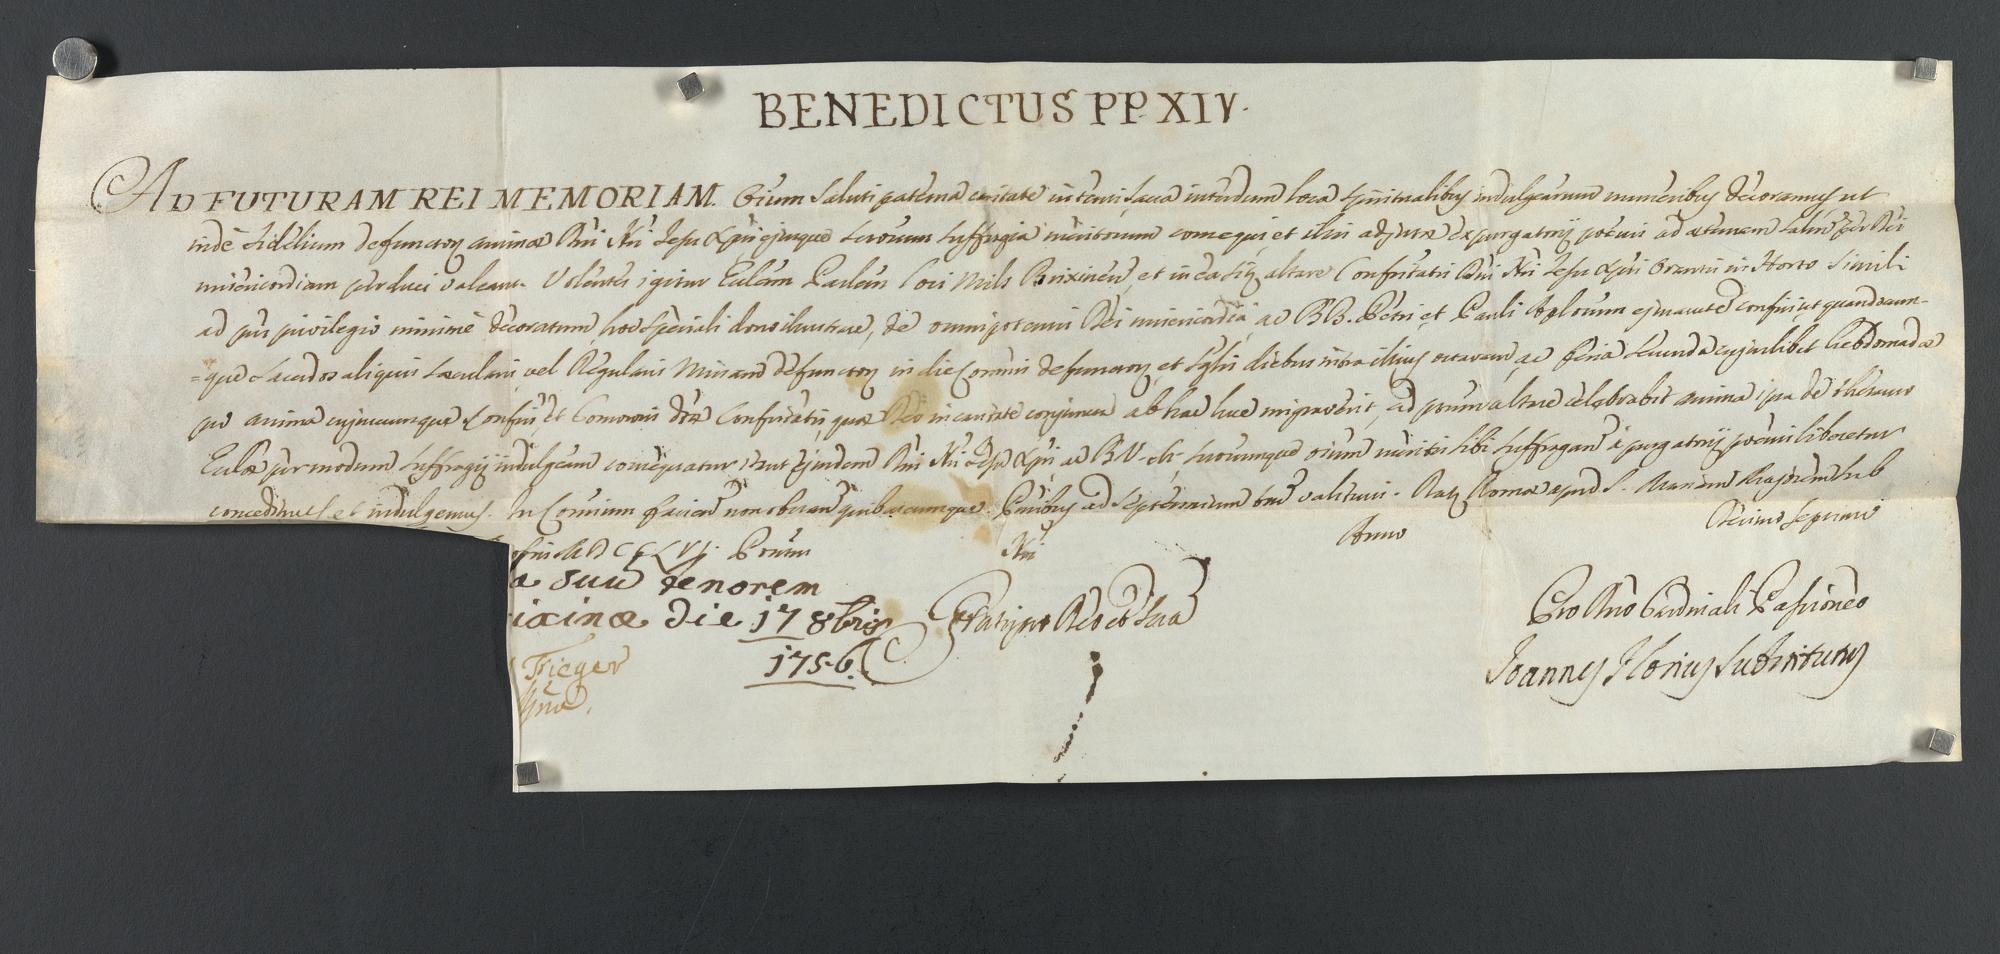 BENEDICTUS PP. XIV.
AD FUTURAM REI MEMORIAM. Oium Saluti paterna caritate intenti, sacra interdum loca spiritualibus indulgentiarum muneribus decoramus ut
inde fidelium defunctor animae Dni Nri Jesu Xpti ejusque suffragia meritorum consequi, et illis adjutae ex purgatorij poenis ad aeternam salutem per Dei
misericordiam perduci valeant. Volentes igitur Eccliam Paroch Loci Mils Brixinen, et in ea situm altare Confratris Dni Nri Jesu Xpti Orantis in Horto simili
ad pns privilegio minime decoratum, hoc speciali dono illustrare, de omnipotentis Dei misericordia ac BB. Petri et Pauli Aplorum ejus aucte confisi, ut quandocun-
=que Sacerdos aliquis saecularis, vel Regularis Missam defunctor in die Commis defunctor, et singlis diebus infra illius octavam, ac feria secunda cujuslibet hebdomadae
pro anima cujuscumque Confris, et Consororis dtae Confratris, quae Deo in caritate conjuncta ab hac luce migraverit, ad pnum altare celebrabit anima ipsa de thesauro
Ecclae per modum suffragij indulgeam consequatur ita ut ejusdem Dni Nri Jesu Xpti ac B.V. suorumque oium meritis sibi suffragan a purgatorij poenis liberetur
concedimus et indulgemus. In Contrium facien non obstan quibuscumque. Pntibus ad septennium tm valituris. Dat Romae apud S. Mariam Majorem sub
Pontus Nri Anno Decimo septimo
a suu tenorem
ixinae die 17 8bris
1756.
Trieger
Gratis pro Deo et Scra
Pro Dno Cardinali Passioneo
Joannes Florius Substitutus